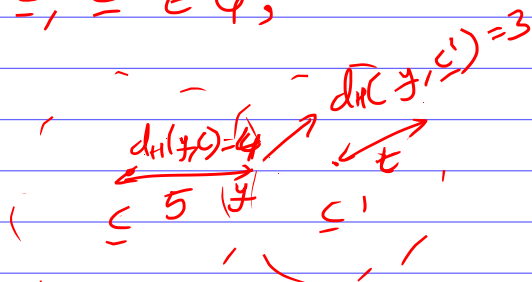 d_H(y, c') = 3
d_H(y,c) = 4
t
5 y
c c'